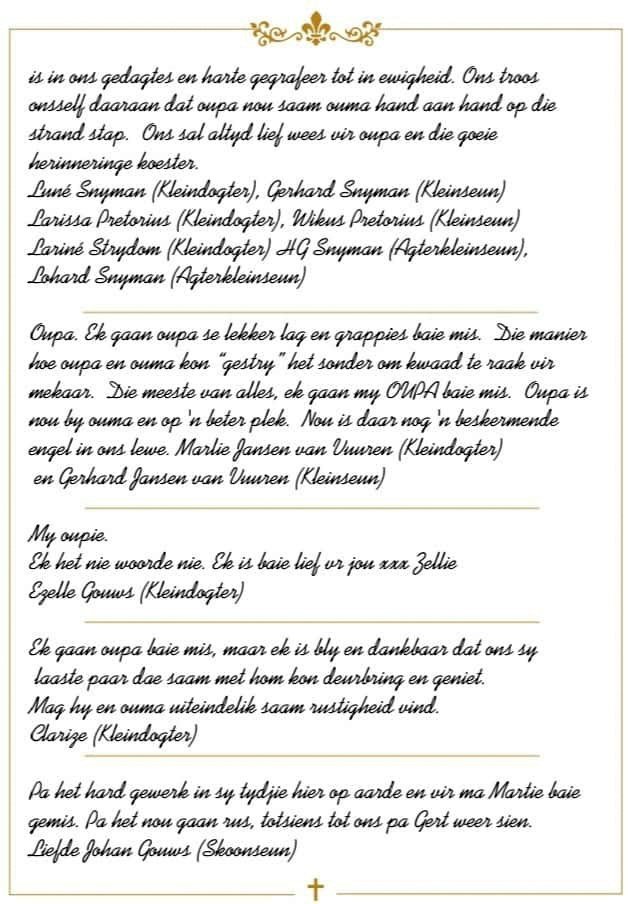 is in ons gedagtes en harte gegrafeer tot in ewigheid. Ons troos
onsself daaraan dat oupa nou saam ouma hand aan hand op die
strand stap. Ons sal altyd lief wees vir oupa en die goeie
herinneringe koester.
Luné Snyman (Kleindogter), Gerhard Snyman (Kleinseun)
Larissa Pretorius (Kleindogter), Wikus Pretorius (Kleinseun)
Lariné Strydom (Kleindogter) HG Snyman (Agterkleinseun),
Lohard Snyman (Agterkleinseun)
Oupa. Ek gaan oupa se lekker lag en grappies baie mis. Die manier
hoe oupa en ouma kon “gestry” het sonder om kwaad te raak vir
mekaar. Die meeste van alles, ek gaan my OUPA baie mis. Oupa is
nou by ouma en op 'n beter plek. Nou is daar nog 'n beskermende
engel in ons lewe. Marlie Jansen van Vuuren (Kleindogter)
en Gerhard Jansen van Vuuren (Kleinseun)
My oupie.
Ek het nie woorde nie. Ek is baie lief vr jou xxx Zellie
Ezelle Gouws (Kleindogter)
Ek gaan oupa baie mis, maar ek is bly en dankbaar dat ons sy
laaste paar dae saam met hom kon deurbring en geniet.
Mag hy en ouma uiteindelik saam rustigheid vind.
Clarize (Kleindogter)
Pa het hard gewerk in sy tydjie hier op aarde en vir ma Martie baie
gemis. Pa het nou gaan rus, totsiens tot ons pa Gert weer sien.
Liefde Johan Gouws (Skoonseun)